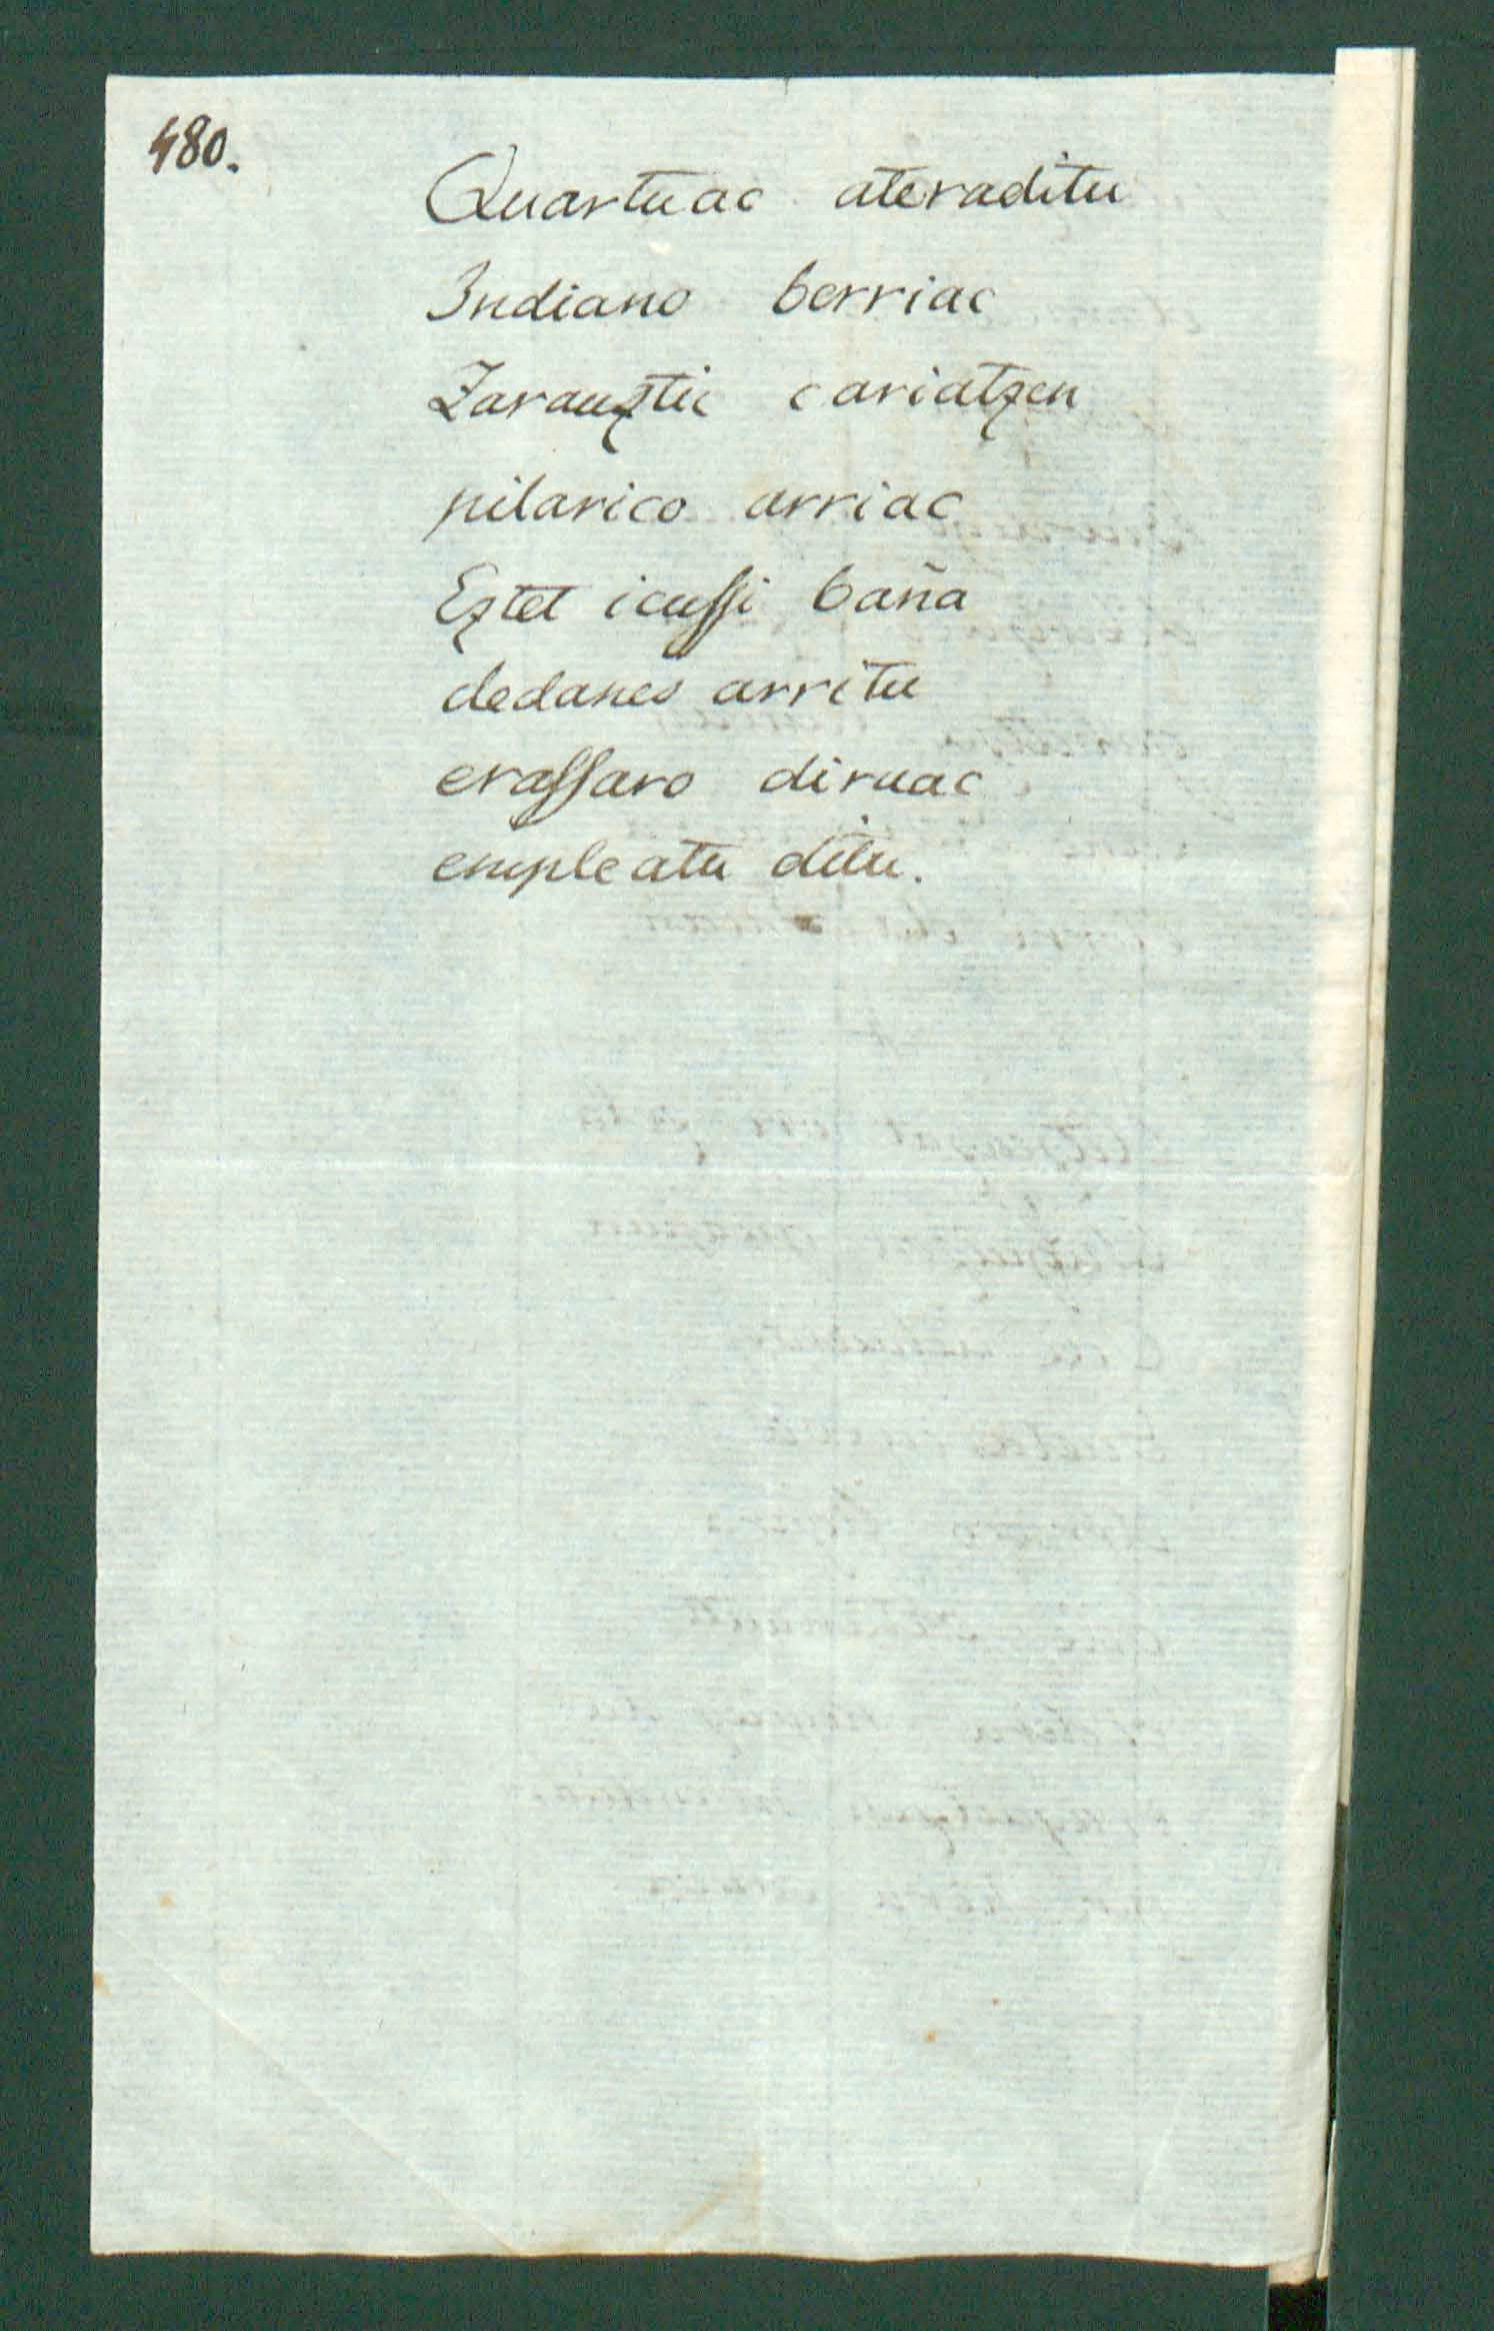 480.
Quartuac ateraditu
Indiano berriac
Zarauztic cariatzen
pilarico arriac
Eztet icussi baña
dedanes arritu
erassaro diruac
empleatu ditu.